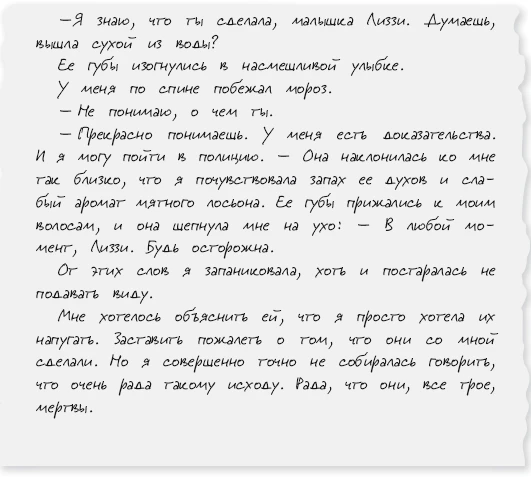 —Я знаю, что ты сделала, малышка Лиззи. Думаешь,
вышла сухой из воды?
Ее губы изогнулись в насмешливой улыбке.
У меня по спине побежал мороз.
— Не понимаю, о чем ты.
— Прекрасно понимаешь. У меня есть доказательства.
И я могу пойти в полицию. — Она наклонилась ко мне
так близко, что я почувствовала запах ее духов и сла-
бый аромат мятного лосьона. Ее губы прижались к моим
волосам, и она шепнула мне на ухо: — В любой мо-
мент, Лиззи. Будь осторожна.
От этих слов я запаниковала, хоть и постаралась не
подавать виду.
Мне хотелось объяснить ей, что я просто хотела их
напугать. Заставить пожалеть о том, что они со мной
сделали. Но я совершенно точно не собиралась говорить,
что очень рада такому исходу. Рада, что они, все трое,
мертвы.